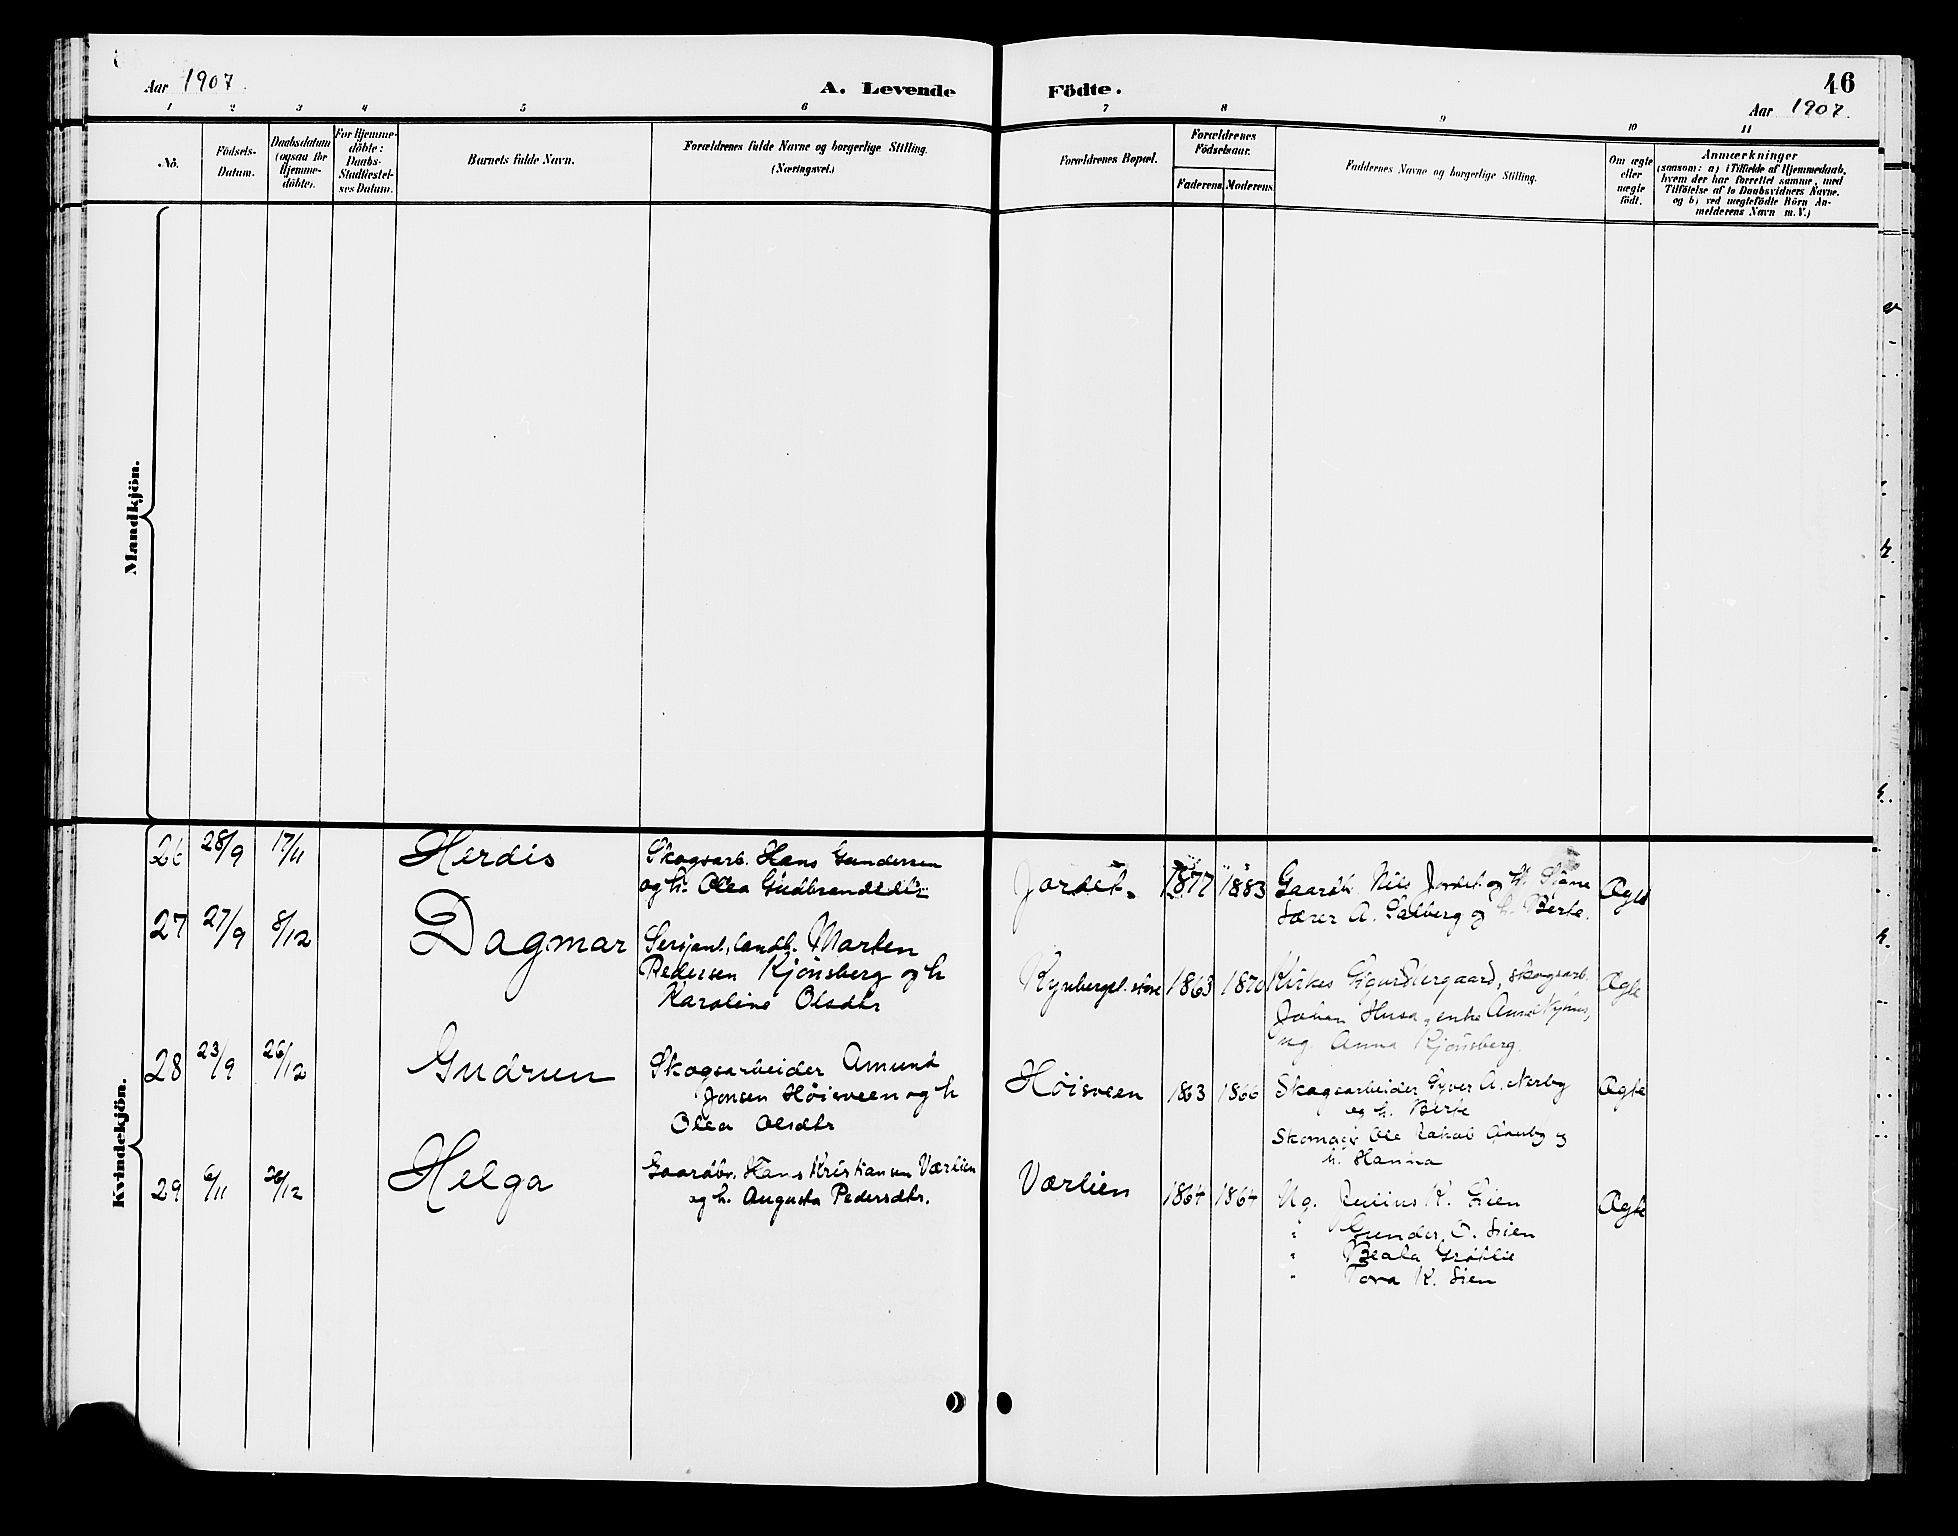 Aar 1907.
A. Levende Födte.
46
Aar 1907.
1 2 3 4 5 6 7 8 9 10 11
No.
Födsels-
Datum.
Daabsdatum
(ogsaa for
Hjemme-
döbte).
For Hjemme-
döbte:
Daabs-
Stadfæstel-
ses Datum.
Barnets fulde Navn.
Forældrenes fulde Navne og borgerlige Stilling.
(Næringsvei.)
Forældrenes Bopæl.
Forældrenes
Födselsaar.
Faderens. Moderens.
Faddernes Navne og borgerlige Stilling.
Om ægte
eller
uægte
födt.
Anmærkninger
(saasom: a) i Tilfælde af Hjemmedaab,
hvem der har forrettet samme, med
Tilföielse af to Daabsvidners Navne.
og b) ved uægtefödte Börn An-
melderens Navn m. V.)
Mandkjön.
Kvindekjön.
26 28/9 17/11 Herdis
Skogsarb. Hans Gundersen
og h. Olea Gudbrandsdtr
Jordet. 1877 1883
Gaardb. Nils Jordet og h.
Lærer A. Galberg og h. Berte.
Ægte
27 27/9 8/12 Dagmar
Serjant, landh. Marten
Pedersen Kjönsberg og h
Karoline Olsdtr
1863 1870
skogsarb.
Johan Husa, enke
ug. Anna Kjönsberg.
Ægte
28 23/9 26/12 Gudrun
Skogsarbeider Amund
Jonsen Höisveen og h
Olea Olsdtr
Höisveen 1863 1866
Skogsarbeider Syver A. Nerby
og h. Berte
Skomager Ole Jakob og
h. Hanna
Ægte
29 6/11 26/12 Helga
Gaardbr. Hans Kristiansen Værlien
og h. Augusta Pedersdtr.
Værlien 1864 1864
Ug. Julius K. Lien
" Gunder O. Lien
" Beata Grötlie
" Tora K. Lien
Ægte